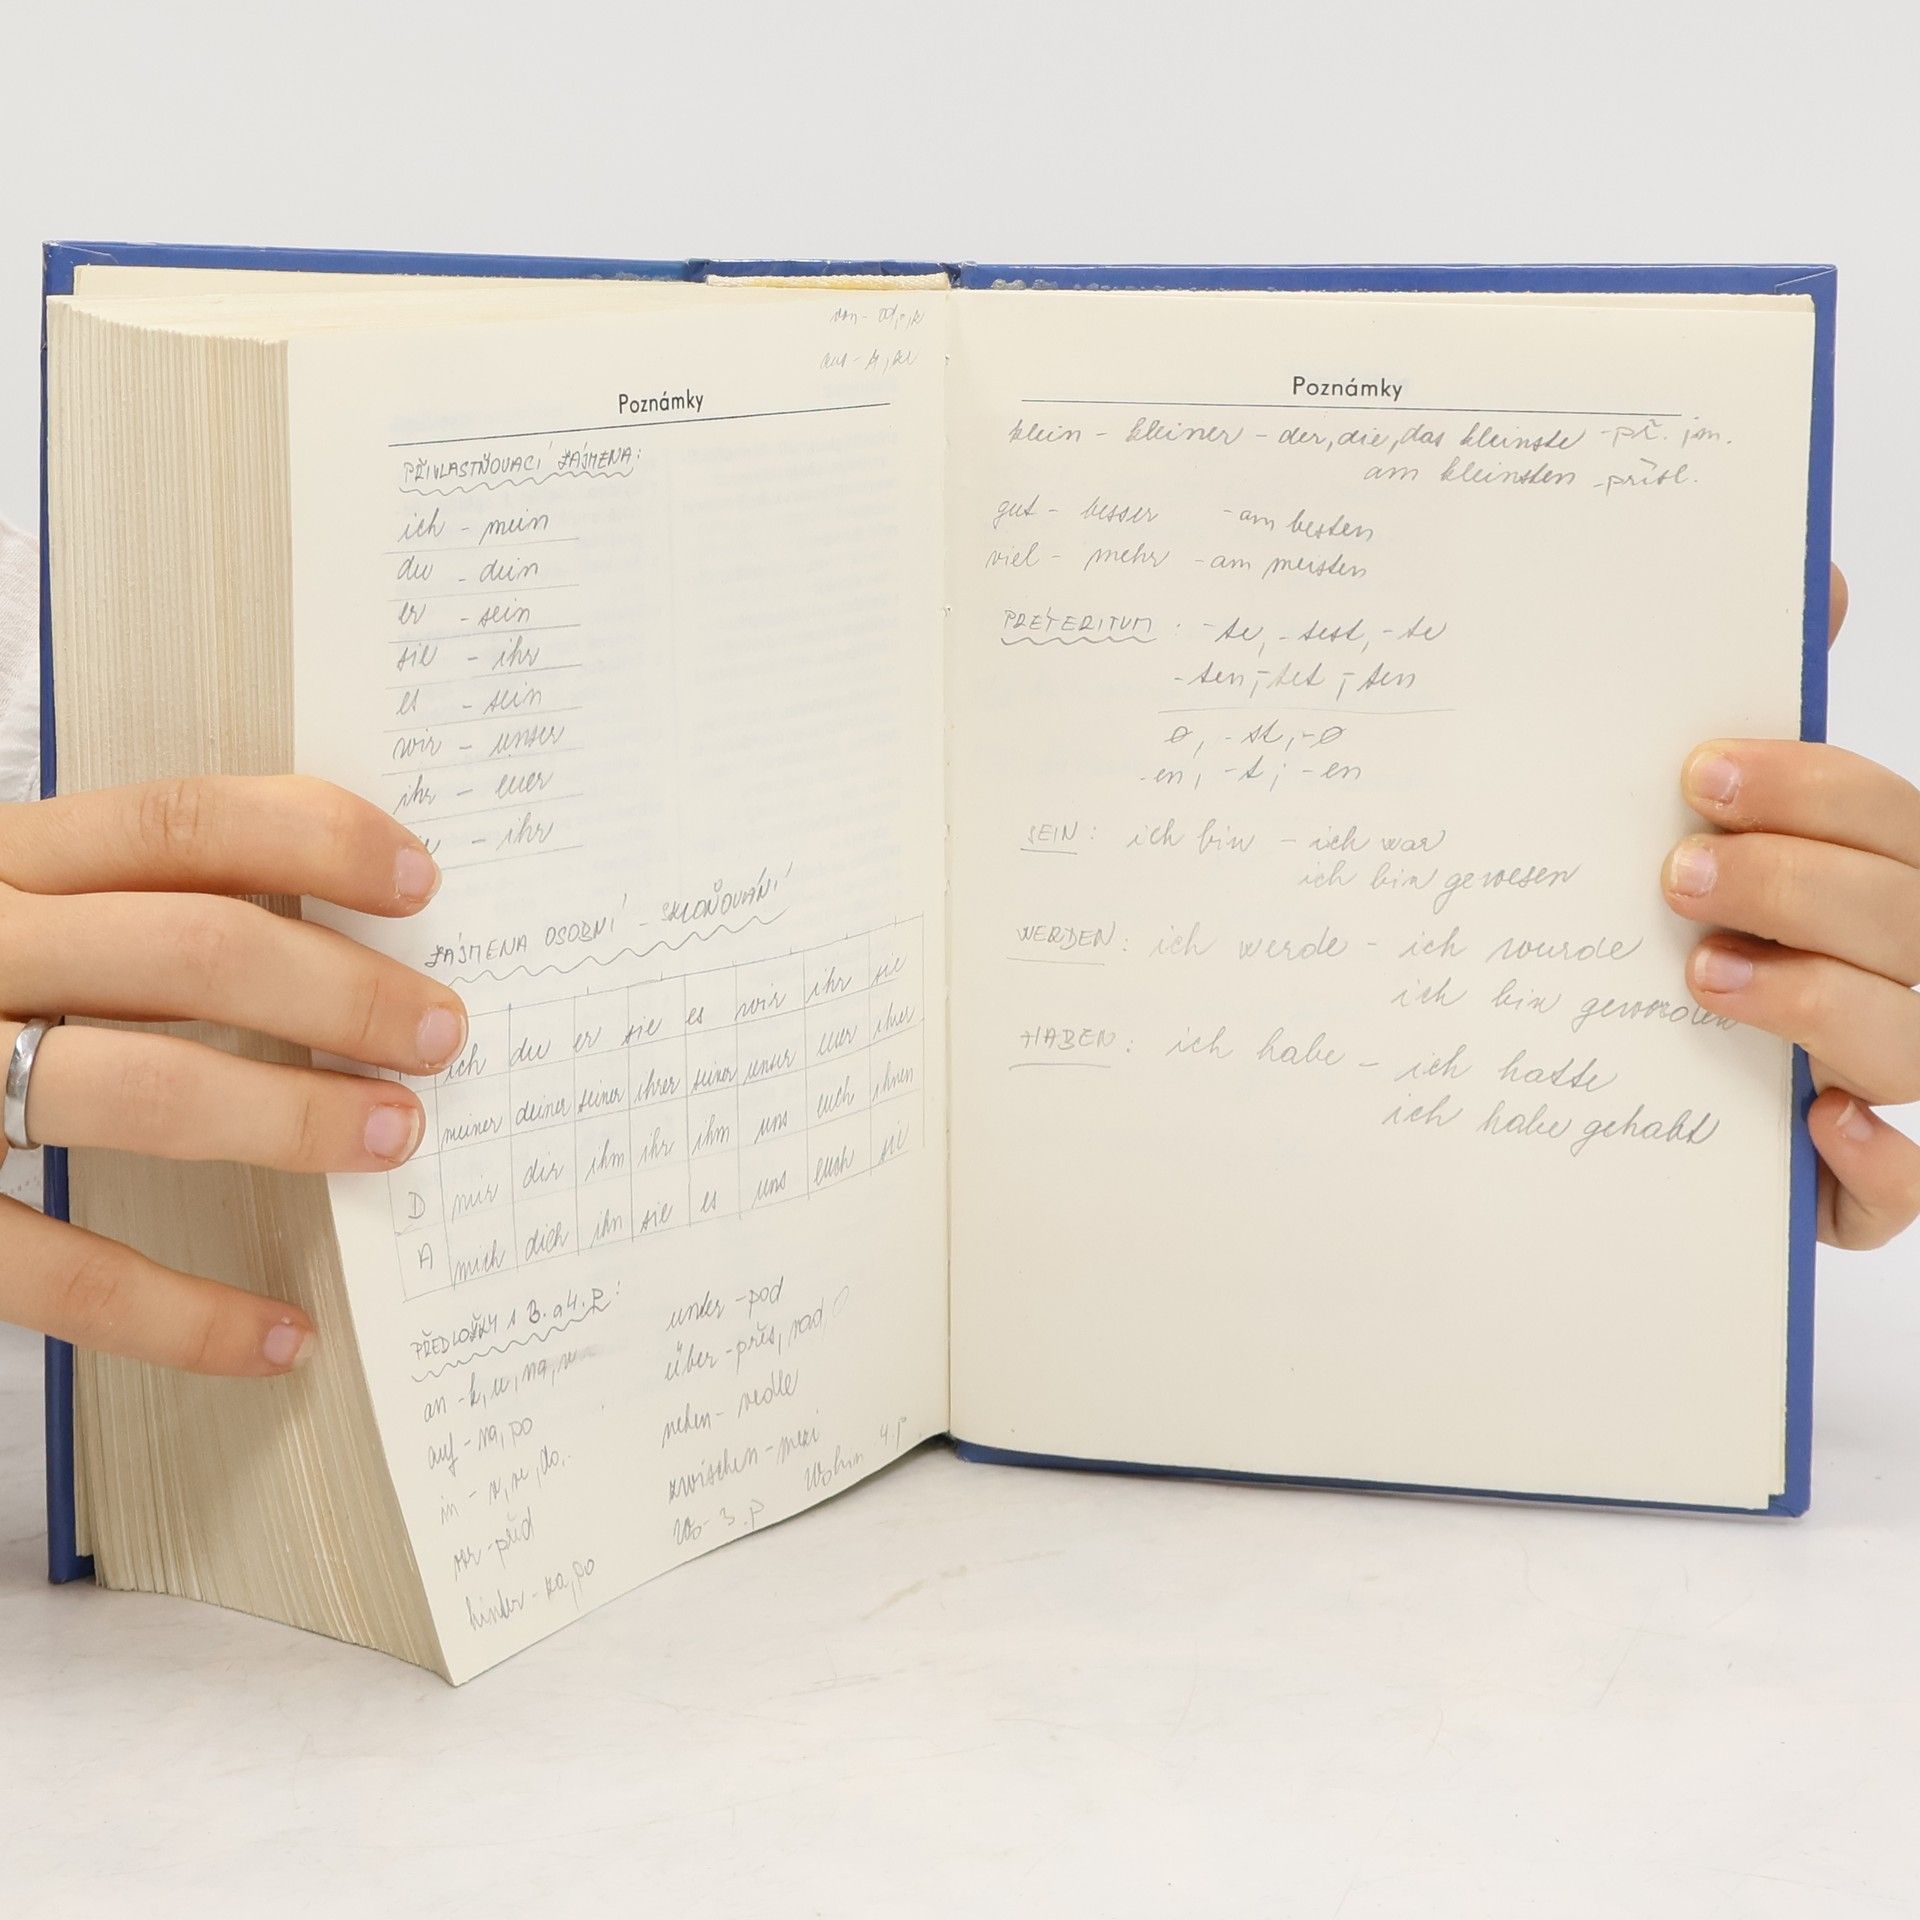 von - od, z
aus - z, ze
Poznámky
PŘIVLASTŇOVACÍ ZÁJMENA:
ich - mein
du - dein
er - sein
sie - ihr
es - sein
wir - unser
ihr - euer
- ihr
ZÁJMENA OSOBNÍ - SKLOŇOVÁNÍ
ich du er sie es wir ihr sie
meiner deiner seiner ihrer seiner unser euer ihrer
D mir dir ihm ihr ihm uns euch ihnen
A mich dich ihn sie es uns euch sie
PŘEDLOŽKY s 3. a 4. P:
an - k, u, na, v
auf - na, po
in - v, ve, do,
vor - před
hinter - za, po
unter - pod
über - přes, nad, o
neben - vedle
zwischen - mezi
Wo - 3. P Wohin 4. P
Poznámky
klein - kleiner - der, die, das kleinste - př. jm.
am kleinsten - přísl.
gut - besser - am besten
viel - mehr - am meisten
PRÉTERITUM : -te, -test, -te
-ten, -tet, -ten
ø, -st, -ø
-en, -t, -en
SEIN : ich bin - ich war
ich bin gewesen
WERDEN : ich werde - ich wurde
ich bin geworden
HABEN : ich habe - ich hatte
ich habe gehabt